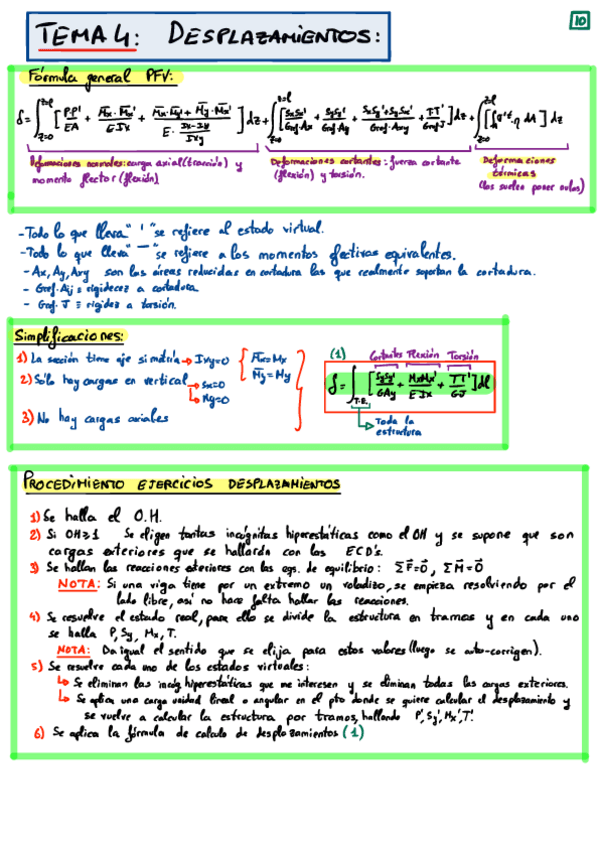 10
TEMA 4: DESPLAZAMIENTOS:
Fórmula general PFV:
δ = ∫_{z=0}^{z=l} [ PP'/EA + M̄x·M̄x'/EIx + (M̄x·M̄y' + M̄y·M̄x')/(E·(Ix·Iy/Ixy)) ] dz + ∫_{z=0}^{z=l} [ SxSx'/(Gref·Ax) + SySy'/(Gref·Ay) + (SxSy'+SySx')/(Gref·Axy) + T·T'/(Gref·J) ] dz + ∫_{z=0}^{z=l} [ ∫_A σ'ε·η dA ] dz
Deformaciones normales: carga axial (tracción) y
momento flector (flexión)
Deformaciones cortantes: fuerza cortante
(flexión) y torsión.
Deformaciones
térmicas
(las suelen poner nulas)
-Todo lo que lleva " ' " se refiere al estado virtual.
-Todo lo que lleva " — " se refiere a los momentos efectivos equivalentes.
- Ax, Ay, Axy son las áreas reducidas en cortadura las que realmente soportan la cortadura.
- Gref·Aij ≡ rigidecez a cortadura
- Gref·J ≡ rigidez a torsión.
Simplificaciones:
1) La sección tiene eje simetría → Ixy=0 { M̄x=Mx
M̄y=My
2) Sólo hay cargas en vertical → Sx=0
→ My=0
3) No hay cargas axiales
(1) Cortantes Flexión Torsión
δ = ∫_{T.E.} [ SySy'/GAy + MxMx'/EIx + TT'/GJ ] dl
Toda la
estructura
PROCEDIMIENTO EJERCICIOS DESPLAZAMIENTOS
1) Se halla el O.H.
2) Si OH≥1 Se eligen tantas incógnitas hiperestáticas como el OH y se supone que son
cargas exteriores que se hallarán con las ECD's.
3) Se hallan las reacciones exteriores con las eqs. de equilibrio: ΣF⃗=0⃗, ΣM⃗=0⃗
NOTA: Si una viga tiene por un extremo un voladizo, se empieza resolviendo por el
lado libre, así no hace falta hallar las reacciones.
4) Se resuelve el estado real, para ello se divide la estructura en tramos y en cada uno
se halla P, Sy, Mx, T.
NOTA: Da igual el sentido que se elija para estos valores (luego se auto-corrigen).
5) Se resuelve cada uno de los estados virtuales:
↳ Se eliminan las incóg. hiperestáticas que me interesen y se eliminan todas las cargas exteriores.
↳ Se aplica una carga unidad lineal o angular en el pto donde se quiere calcular el desplazamiento y
se vuelve a calcular la estructura por tramos, hallando P', Sy', Mx', T'.
6) Se aplica la fórmula de calculo de desplazamientos (1)